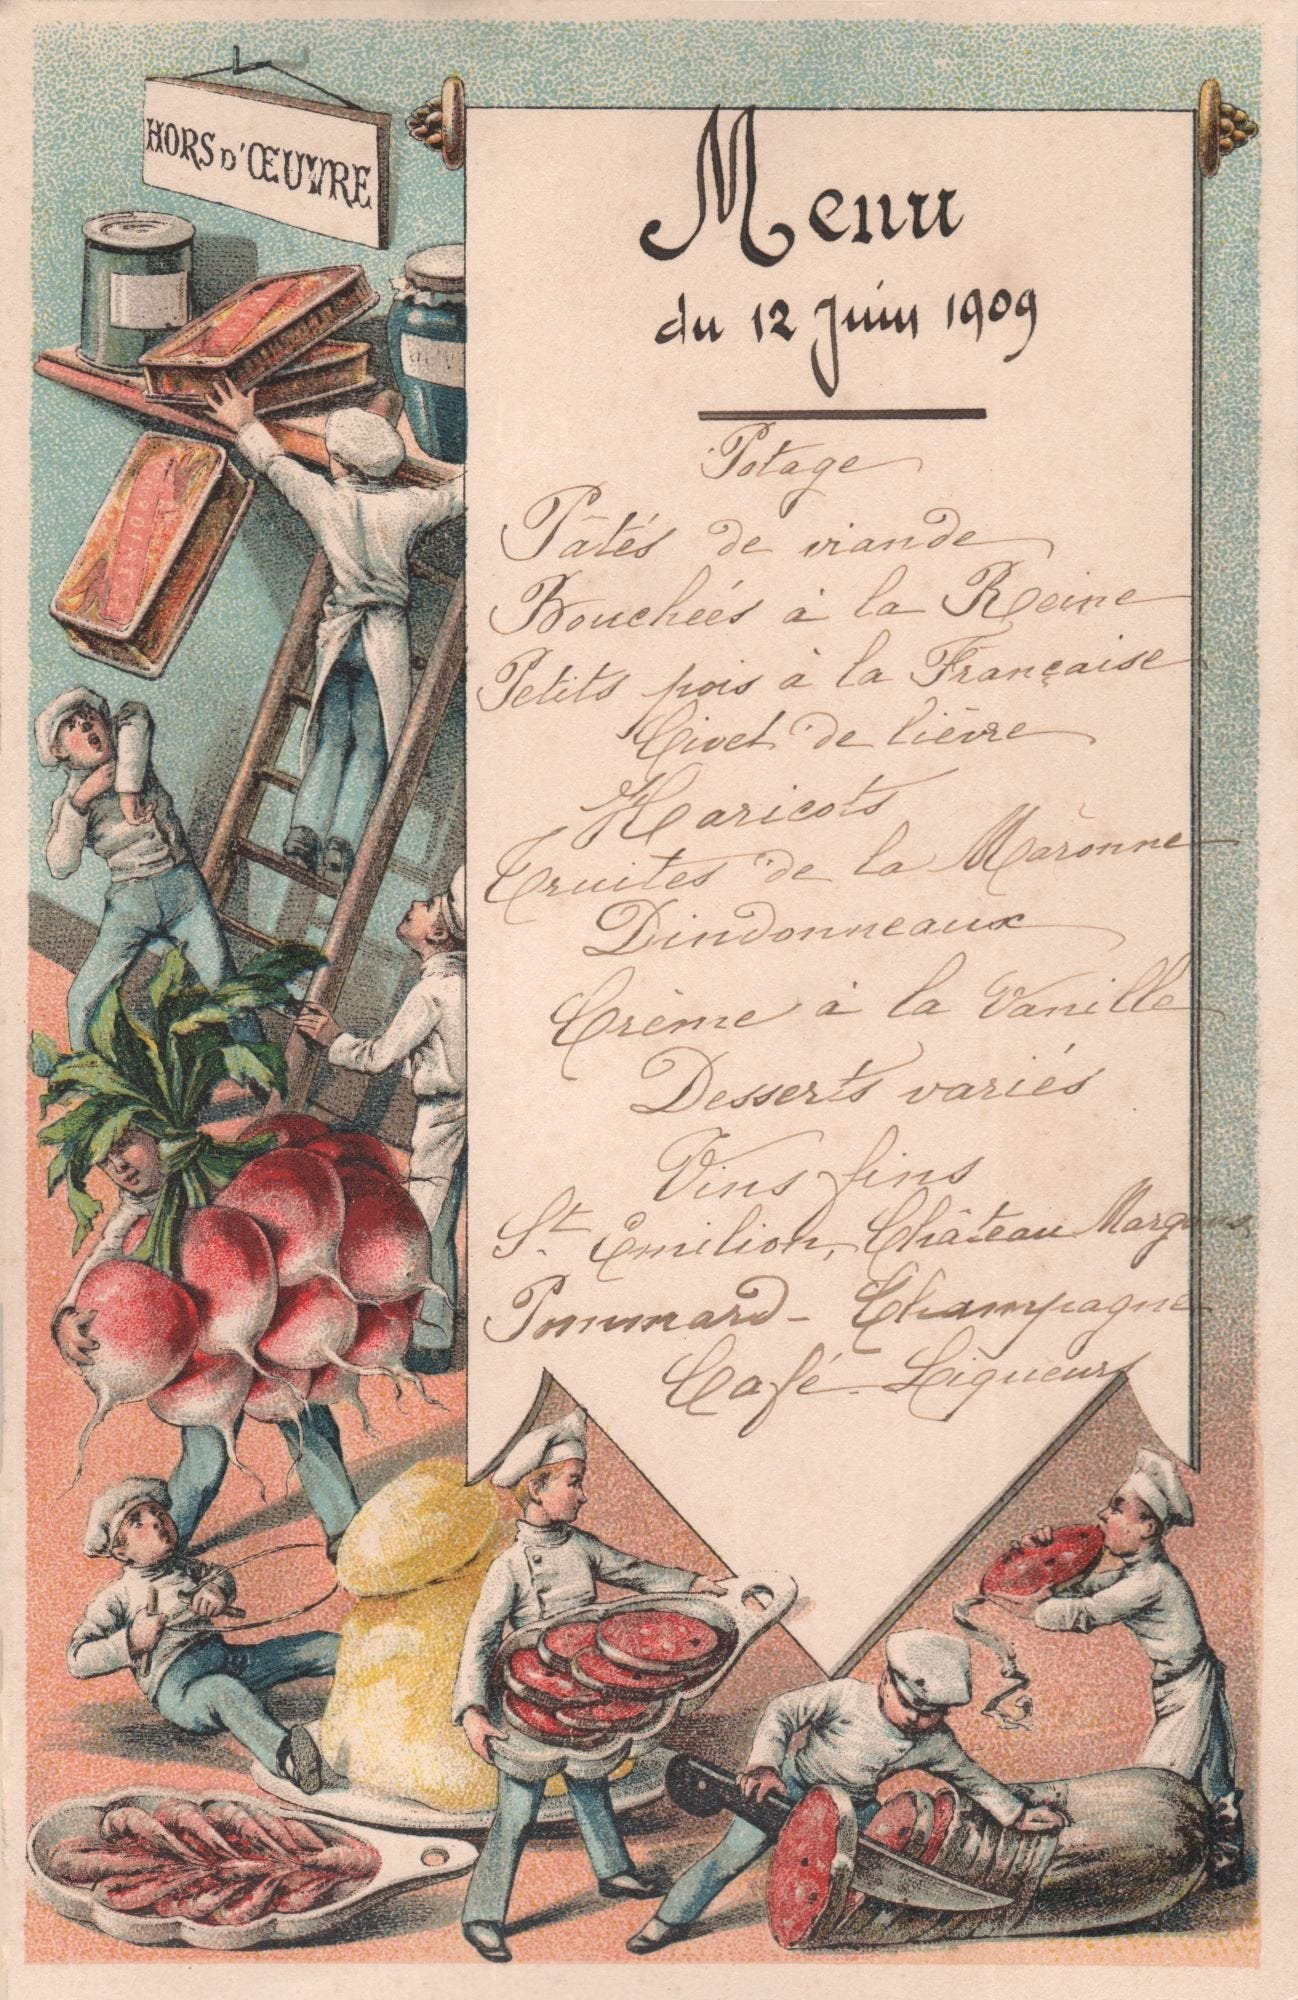 HORS D'ŒUVRE
Menu
du 12 Juin 1909
Potage
Pâtés de viande
Bouchées à la Reine
Petits pois à la Française
Civet de lièvre
Haricots
Truites de la Maronne
Dindonneaux
Crème à la Vanille
Desserts variés
Vins fins
St. Emilion, Château Margaux
Pommard - Champagne
Café - Liqueurs